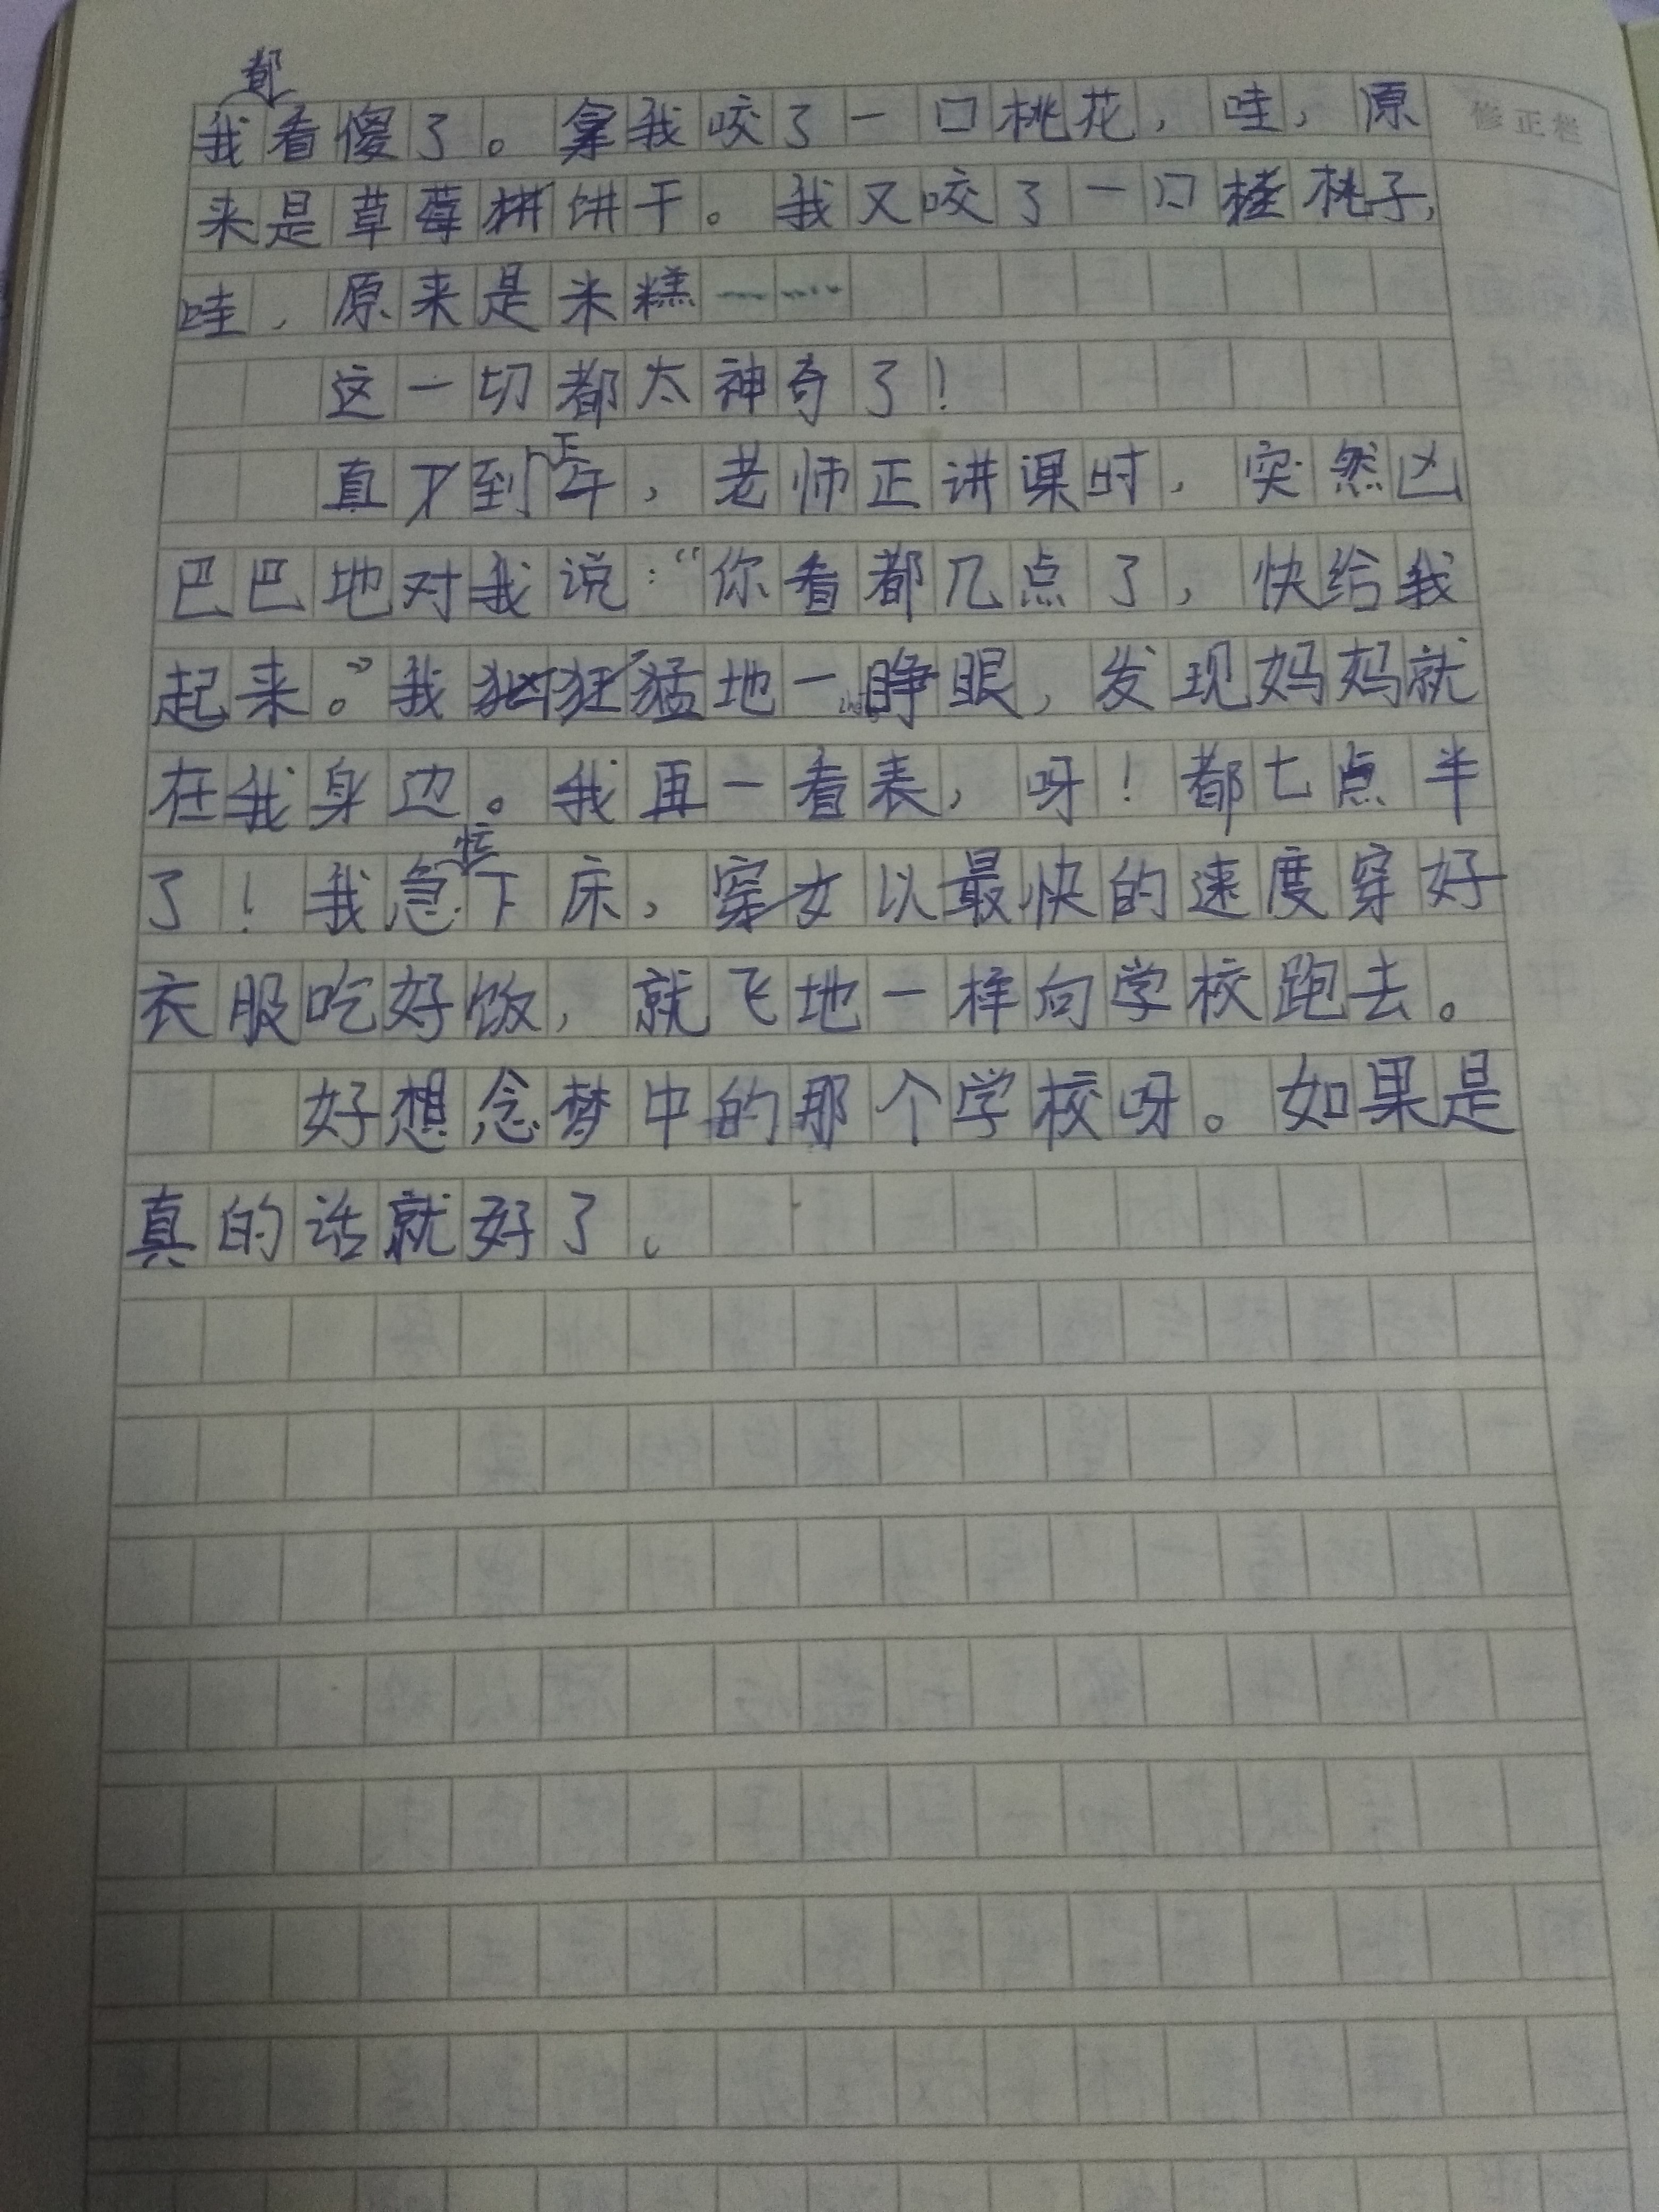 我都看傻了。我咬了一口桃花，哇，原
来是草莓饼干。我又咬了一口桃子，
哇，原来是米糕……
这一切都太神奇了！
直到正午，老师正讲课时，突然凶
巴巴地对我说：“你看都几点了，快给我
起来。”我猛地一睁眼，发现妈妈就
在我身边。我再一看表，呀！都七点半
了！我急忙下床，以最快的速度穿好
衣服吃好饭，就飞地一样向学校跑去。
好想念梦中的那个学校呀。如果是
真的话就好了。
修正栏